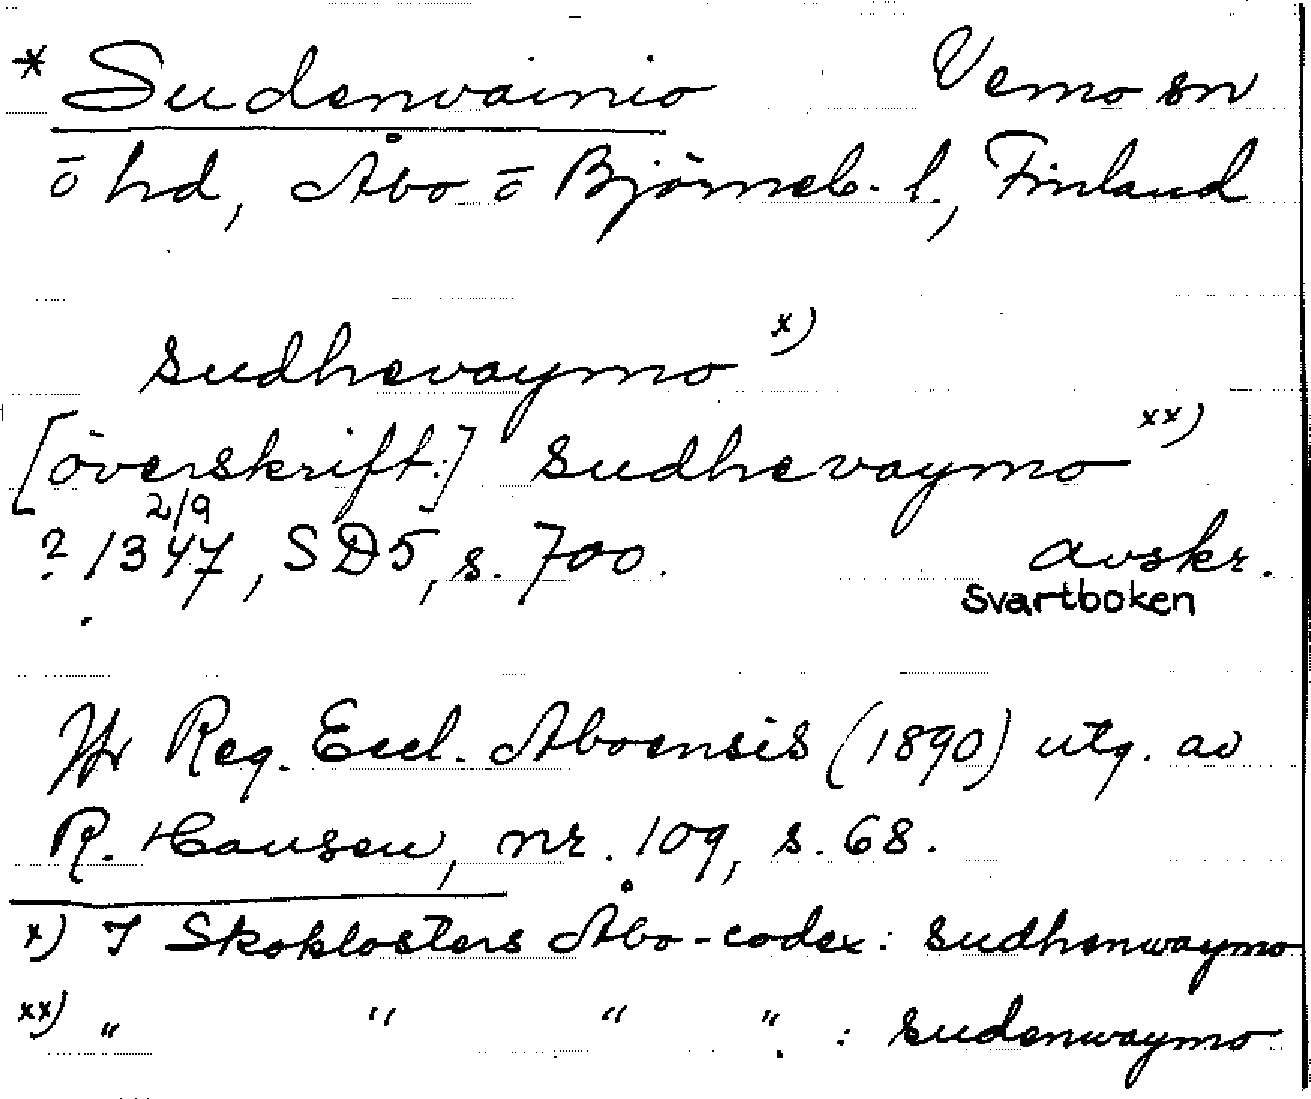 * Sudenvainio Vemo sn
ō hd, Åbo ō Björneb. l., Finland
sudhevaymo x)
[överskift:] sudhevaymo xx)
2/9
? 1347, SD5, s. 700. avskr.
Svartboken
Jfr Reg. Eccl. Aboensis (1890) utg. av
R. Hausen, nr. 109, s. 68.
x) I Skoklosters Åbo-codex: sudhenwaymo
xx) " " " " : sudenwaymo